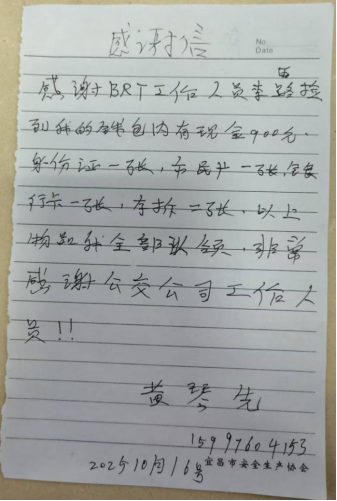 感谢信
No.
Date
感谢BRT工作人员李路捡
到我的钱包内有现金900元.
身份证一张,市民卡一张,
行卡一张,存折二张.以上
物品我全部认领,非常
感谢公交公司工作人
员!!
黄琴先
15997604153
10月16号
宜昌市安全生产协会